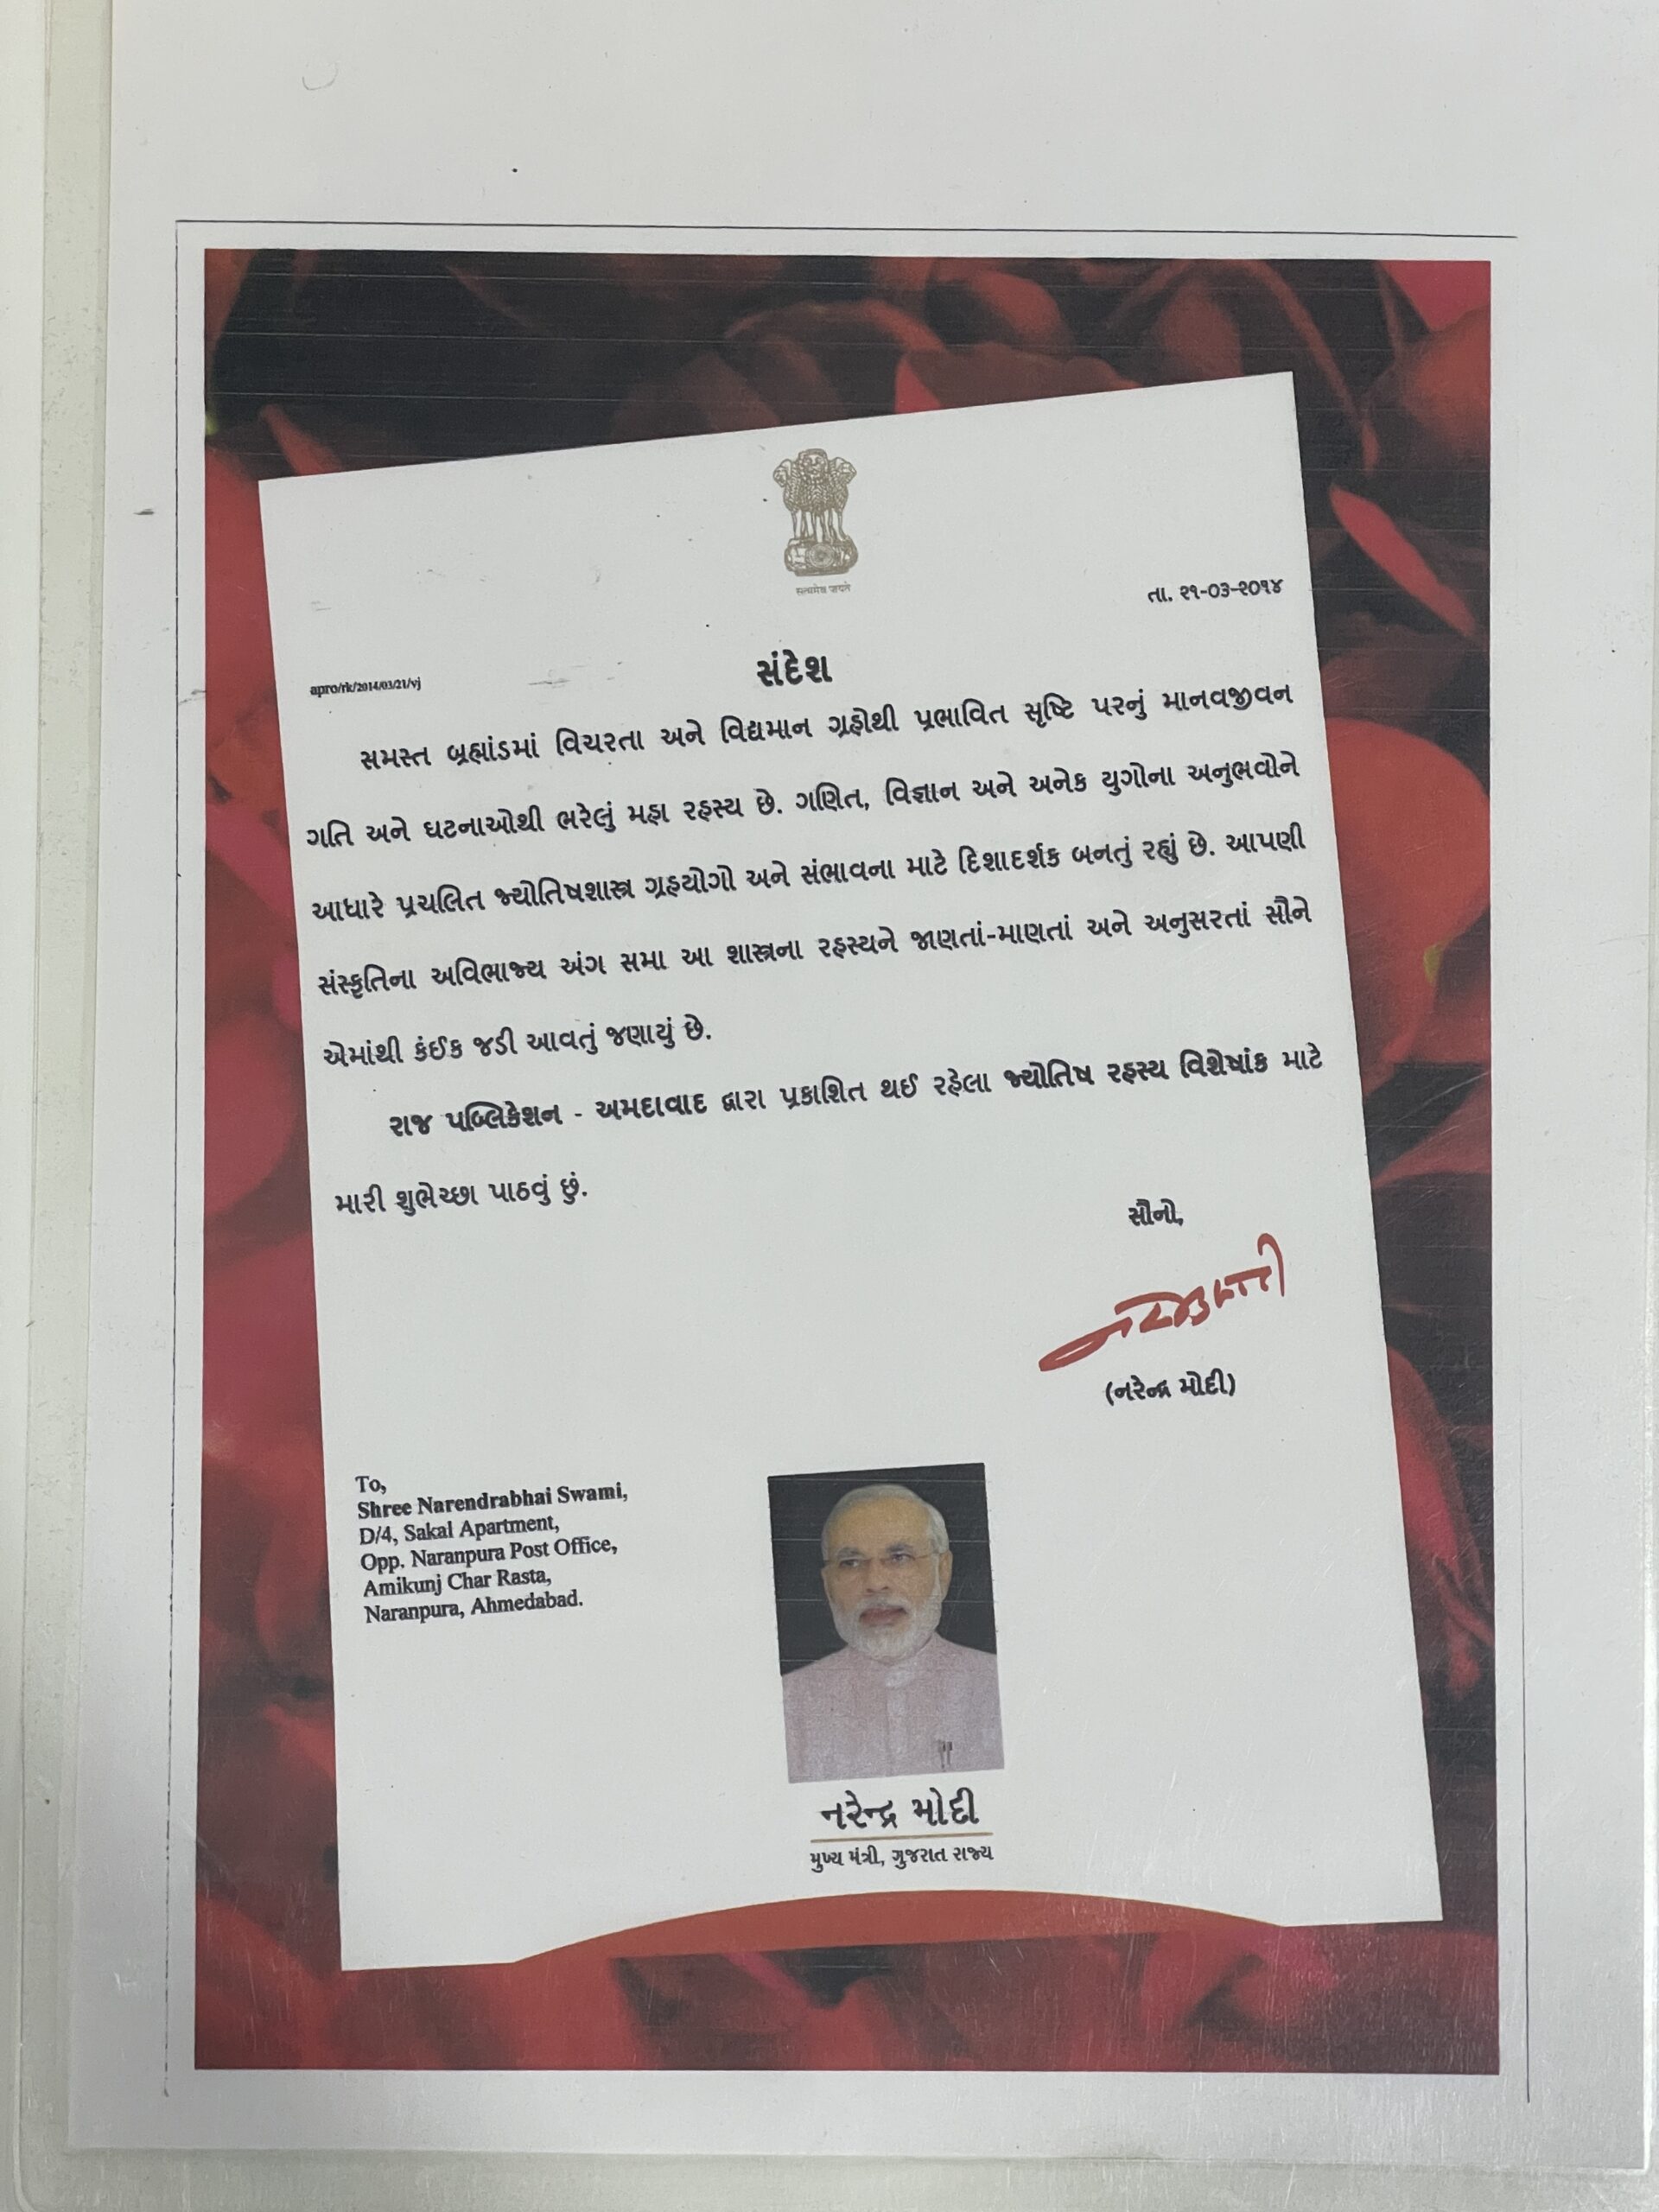 सत्यमेव जयते
તા. ૨૧-૦૩-૨૦૧૪
સંદેશ
apro/rk/2014/03/21/vj
સમસ્ત બ્રહ્માંડમાં વિચરતા અને વિદ્યમાન ગ્રહોથી પ્રભાવિત સૃષ્ટિ પરનું માનવજીવન
ગતિ અને ઘટનાઓથી ભરેલું મહા રહસ્ય છે. ગણિત, વિજ્ઞાન અને અનેક યુગોના અનુભવોને
આધારે પ્રચલિત જ્યોતિષશાસ્ત્ર ગ્રહયોગો અને સંભાવના માટે દિશાદર્શક બનતું રહ્યું છે. આપણી
સંસ્કૃતિના અવિભાજ્ય અંગ સમા આ શાસ્ત્રના રહસ્યને જાણતાં-માણતાં અને અનુસરતાં સૌને
એમાંથી કંઈક જડી આવતું જણાયું છે.
રાજ પબ્લિકેશન - અમદાવાદ દ્વારા પ્રકાશિત થઈ રહેલા જ્યોતિષ રહસ્ય વિશેષાંક માટે
મારી શુભેચ્છા પાઠવું છું.
સૌનો,
(નરેન્દ્ર મોદી)
To,
Shree Narendrabhai Swami,
D/4, Sakal Apartment,
Opp. Naranpura Post Office,
Amikunj Char Rasta,
Naranpura, Ahmedabad.
નરેન્દ્ર મોદી
મુખ્ય મંત્રી, ગુજરાત રાજ્ય